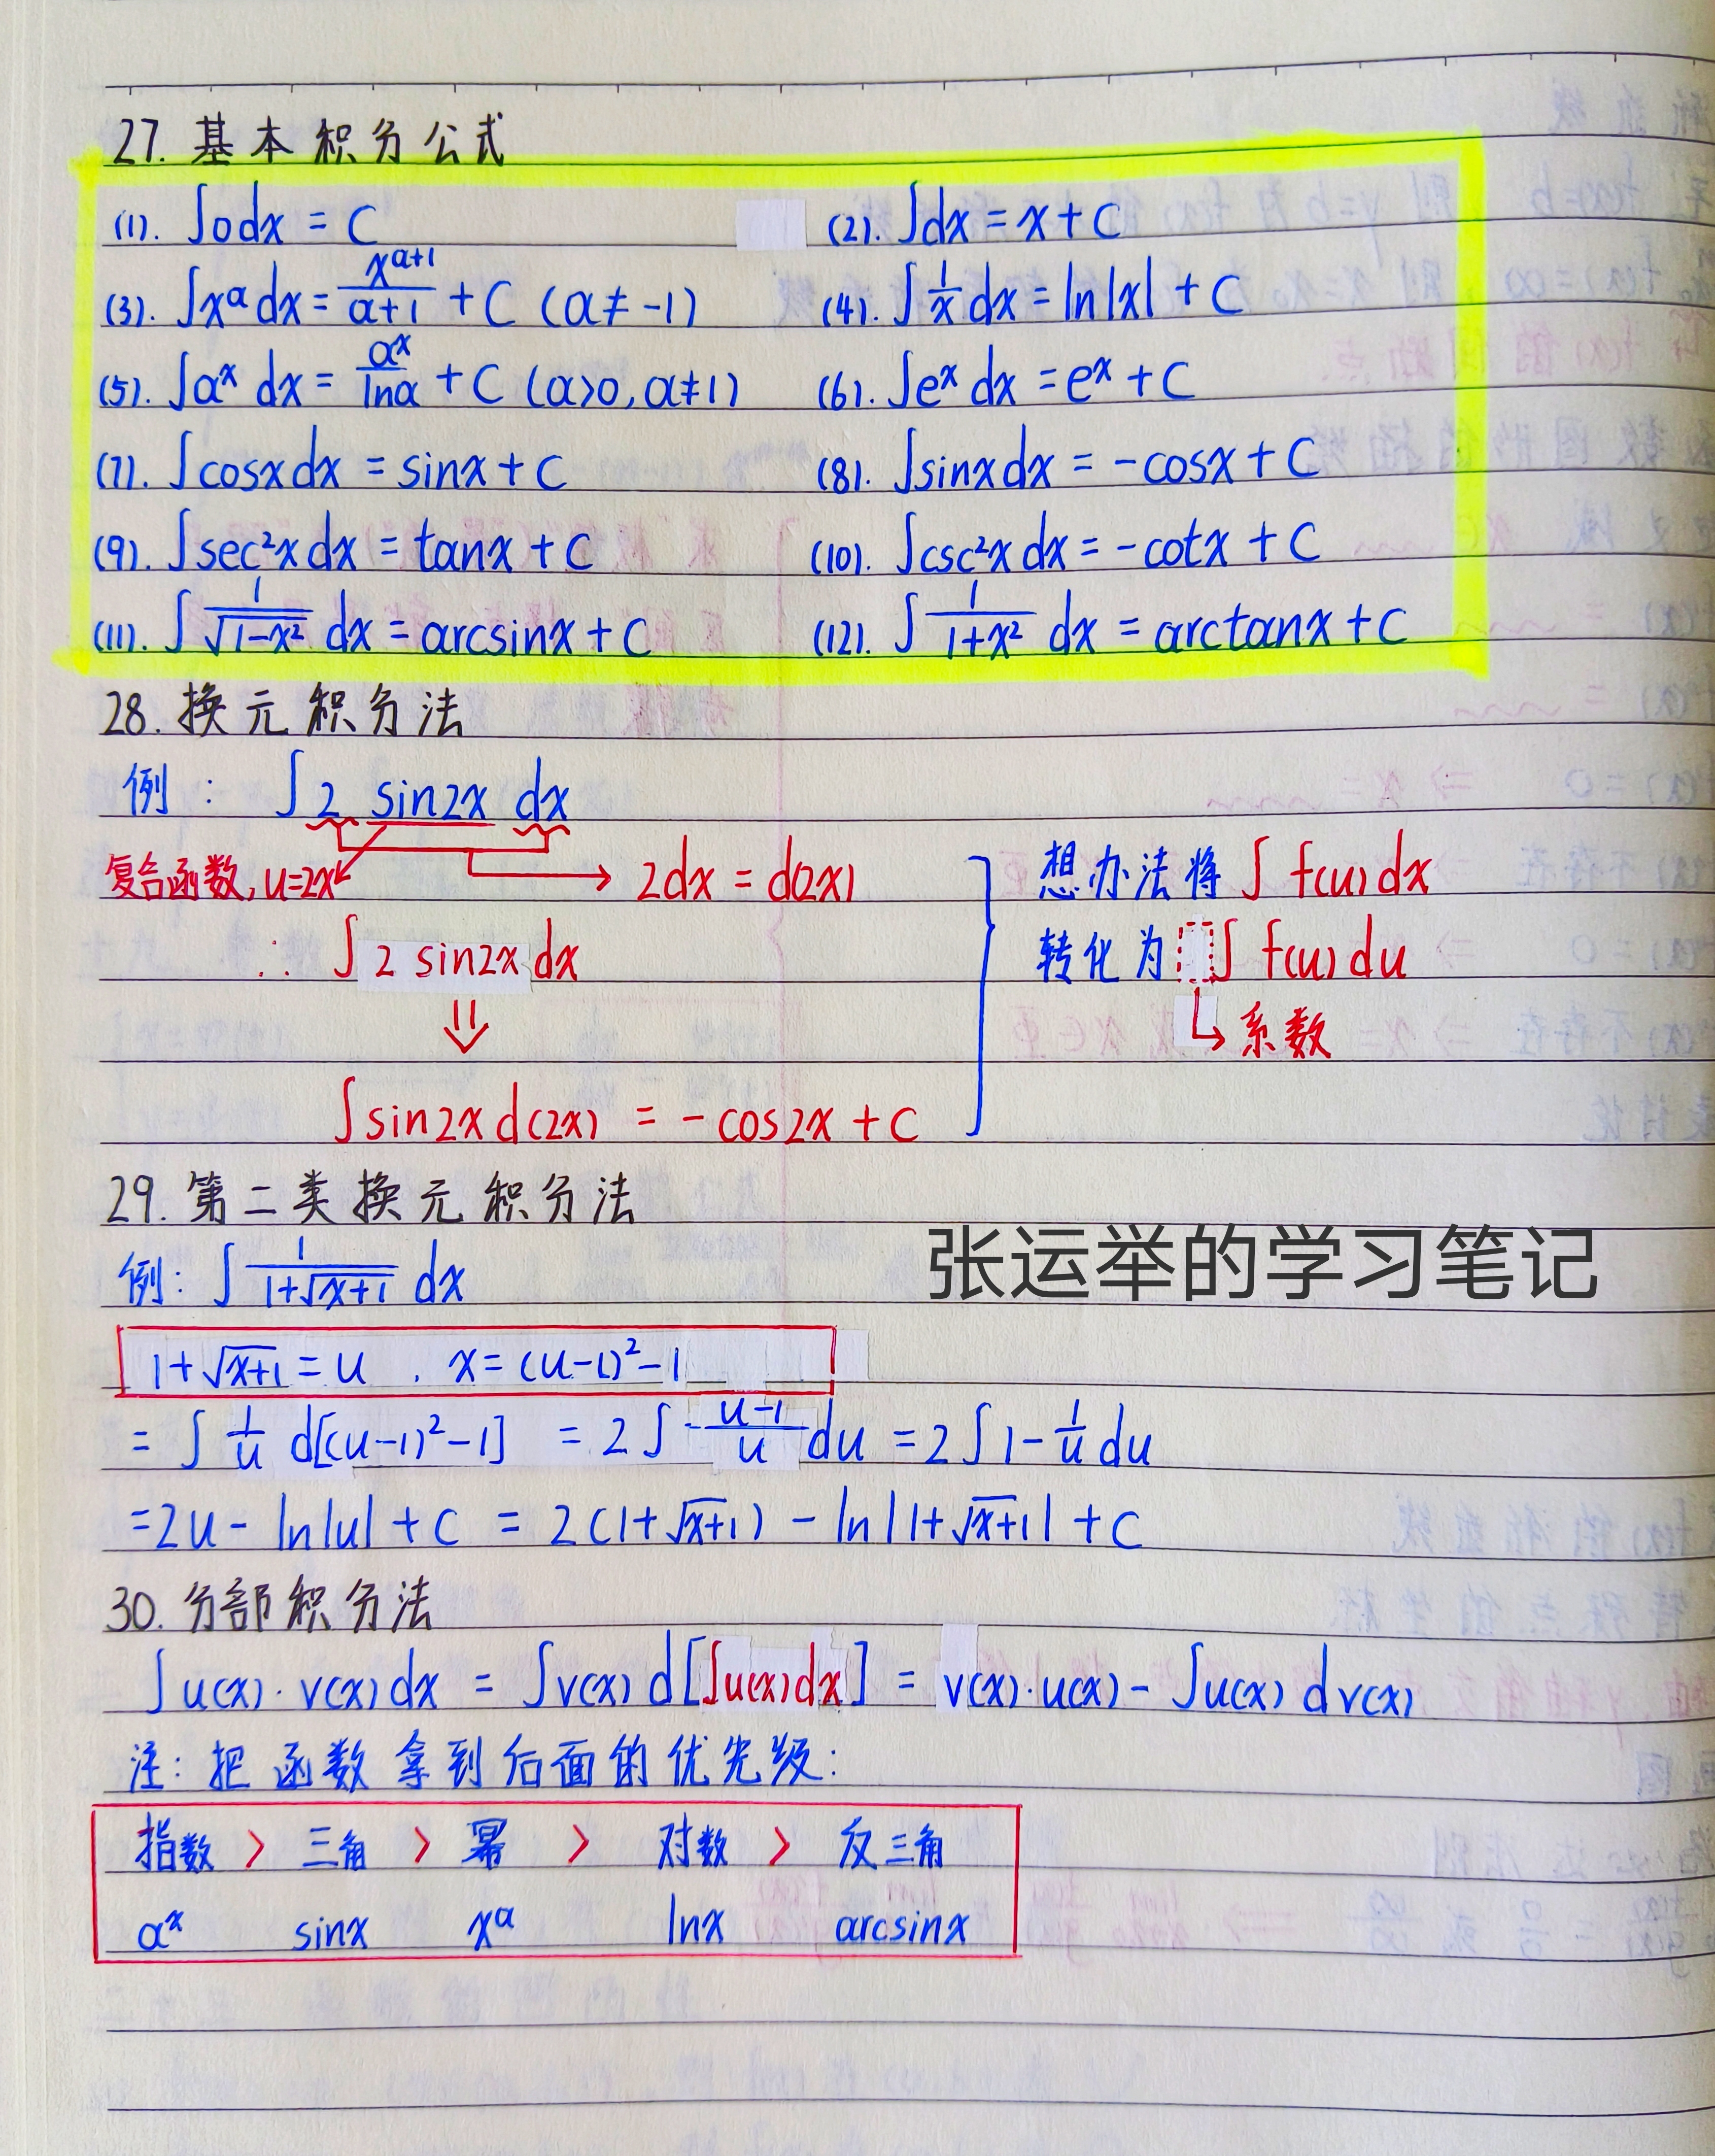 27. 基本积分公式
(1). ∫0dx = C (2). ∫dx = x + C
(3). ∫x^α dx = x^(α+1)/(α+1) + C (α ≠ -1) (4). ∫1/x dx = ln|x| + C
(5). ∫a^x dx = a^x/lna + C (a>0, a≠1) (6). ∫e^x dx = e^x + C
(7). ∫cosxdx = sinx + C (8). ∫sinxdx = -cosx + C
(9). ∫sec²xdx = tanx + C (10). ∫csc²xdx = -cotx + C
(11). ∫1/√(1-x²) dx = arcsinx + C (12). ∫1/(1+x²) dx = arctanx + C
28. 换元积分法
例: ∫2 sin2x dx
复合函数, u=2x → 2dx = d(2x)
∴ ∫2 sin2x dx
⇓
∫sin2xd(2x) = -cos2x + C
想办法将∫f(u)dx
转化为∫f(u)du
→ 系数
29. 第二类换元积分法
例: ∫1/(1+√(x+1)) dx
张运举的学习笔记
1+√(x+1) = u , x = (u-1)²-1
= ∫1/u d[(u-1)²-1] = 2∫(u-1)/u du = 2∫1-1/u du
= 2u - ln|u| + C = 2(1+√(x+1)) - ln|1+√(x+1)| + C
30. 分部积分法
∫u(x)·v(x)dx = ∫v(x)d[∫u(x)dx] = v(x)·u(x) - ∫u(x)dv(x)
注: 把函数拿到后面的优先级:
指数 > 三角 > 幂 > 对数 > 反三角
a^x sinx x^α lnx arcsinx